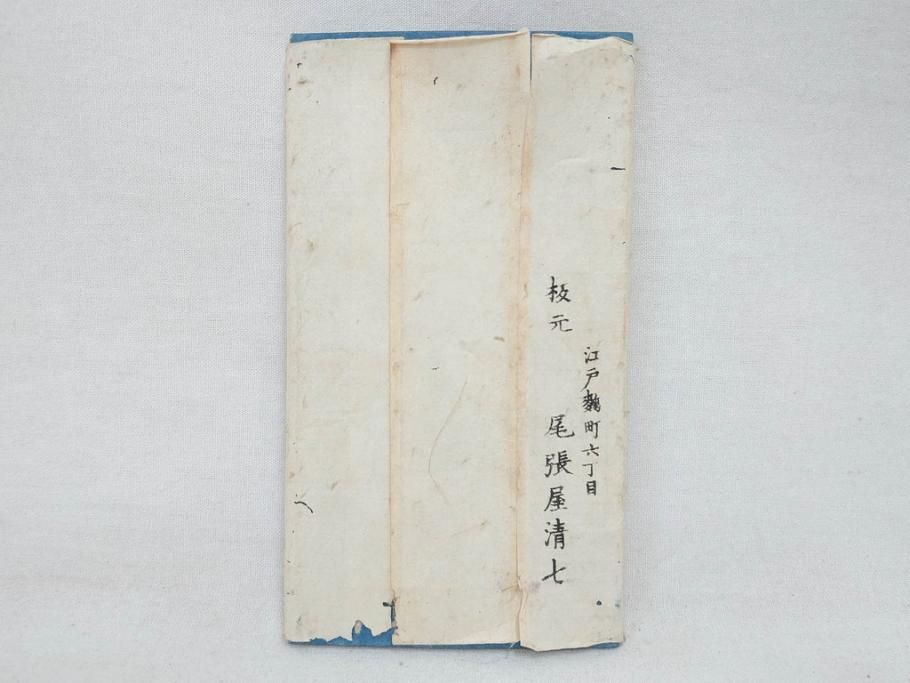 江戸麹町六丁目
板元
尾張屋清七